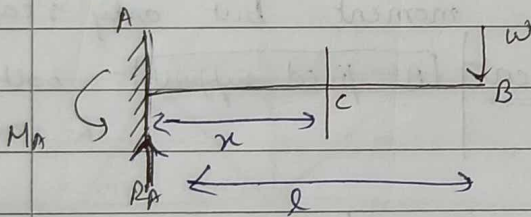 A
W
B
C
MA
x
RA
l